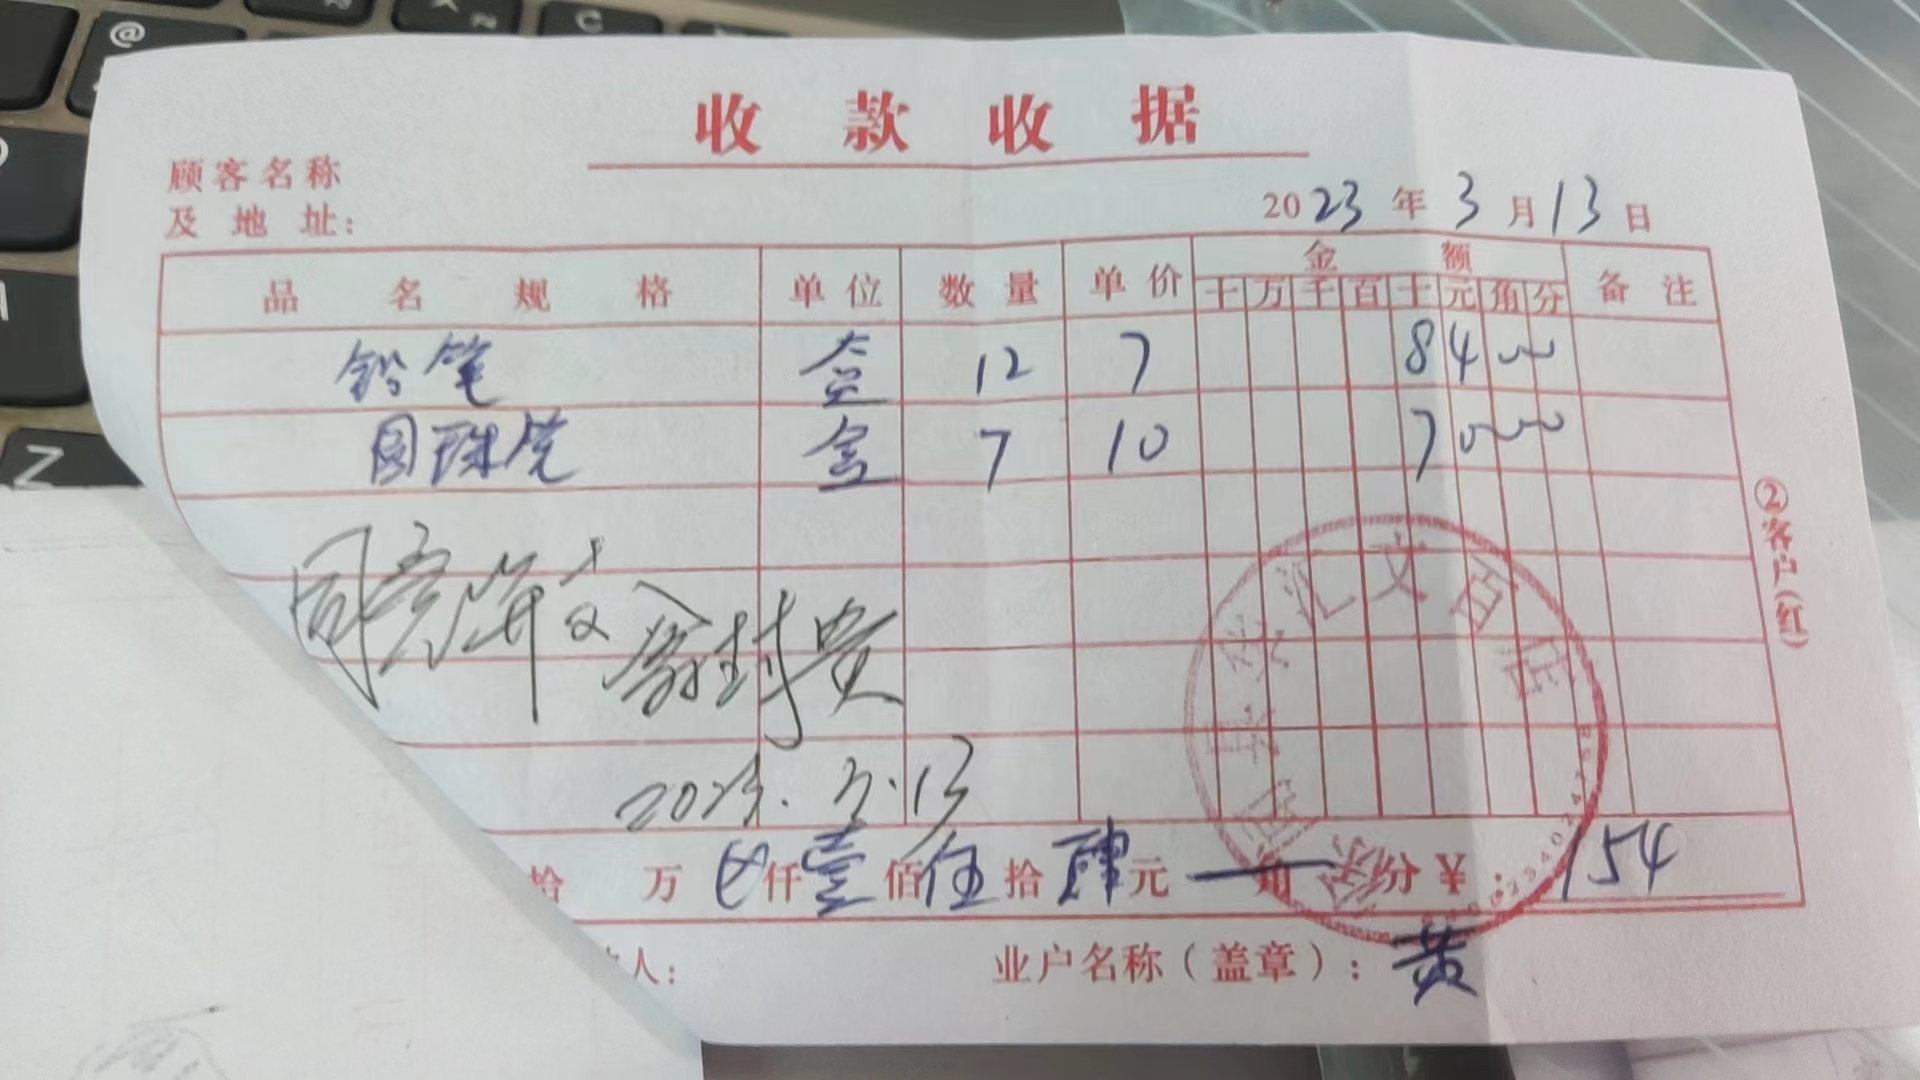 收款收据
顾客名称
及地址：
2023年3月13日
品名规格 单位 数量 单价 金额 备注
十万千百十元角分
铅笔 盒 12 7 84 00
圆珠笔 盒 7 10 70 00
同意
2023.3.13
拾 万 仟壹佰伍拾肆元 角 分￥：154
人：
业户名称（盖章）：黄
②客户（红）
汇文百店
@
C
Z